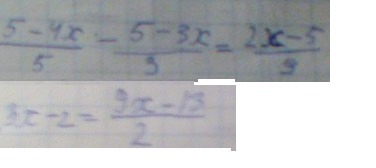 (5-4x)/5 - (5-3x)/9 = (2x-5)/9
3x-2 = (9x-13)/2